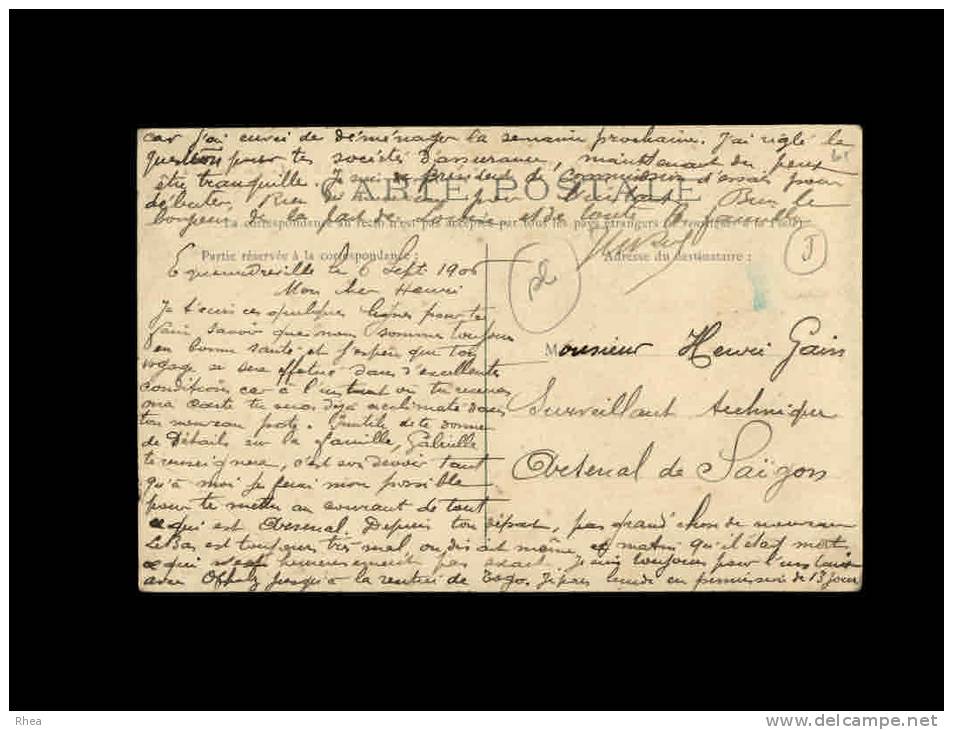 car j'ai envie de déménager la semaine prochaine. J'ai réglé la
question pour tes sociétés d'assurance, maintenant tu peux
être tranquille. Je suis Président de Commission d'essais pour
CARTE POSTALE
débuter. Rien de nouveau pour l'instant. Bien le
bonjour de la part de Louise et de toute la famille
La correspondance au recto n'est pas acceptée par tous les pays étrangers (Se renseigner à la Poste)
Partie réservée à la correspondance :
Adresse du destinataire :
J
Equeurdreville le 6 Sept. 1906
Mon cher Henri
Je t'écris ces quelques lignes pour te
faire savoir que nous sommes toujours
en bonne santé et j'espère que ton
voyage se sera effectué dans d'excellentes
conditions car à l'instant où tu recevras
ma carte tu seras déjà acclimaté dans
ton nouveau poste. Inutile de te donner
de Détails sur la famille, Gabrielle
te renseignera, c'est son devoir tant
qu'à moi je ferai mon possible
pour te mettre au courant de tout
ce qui est Arsenal. Depuis ton départ, pas grand chose de nouveau
LeBas est toujours très mal, on disait même ce matin qu'il était mort
ce qui n'est heureusement pas exact. Je suis toujours pour l'instant
avec jusqu'à la rentrée de . Je pars lundi en permission de 13 jours
Monsieur Henri Gain
Surveillant technique
Arsenal de Saïgon
Rhea
delcampe.net